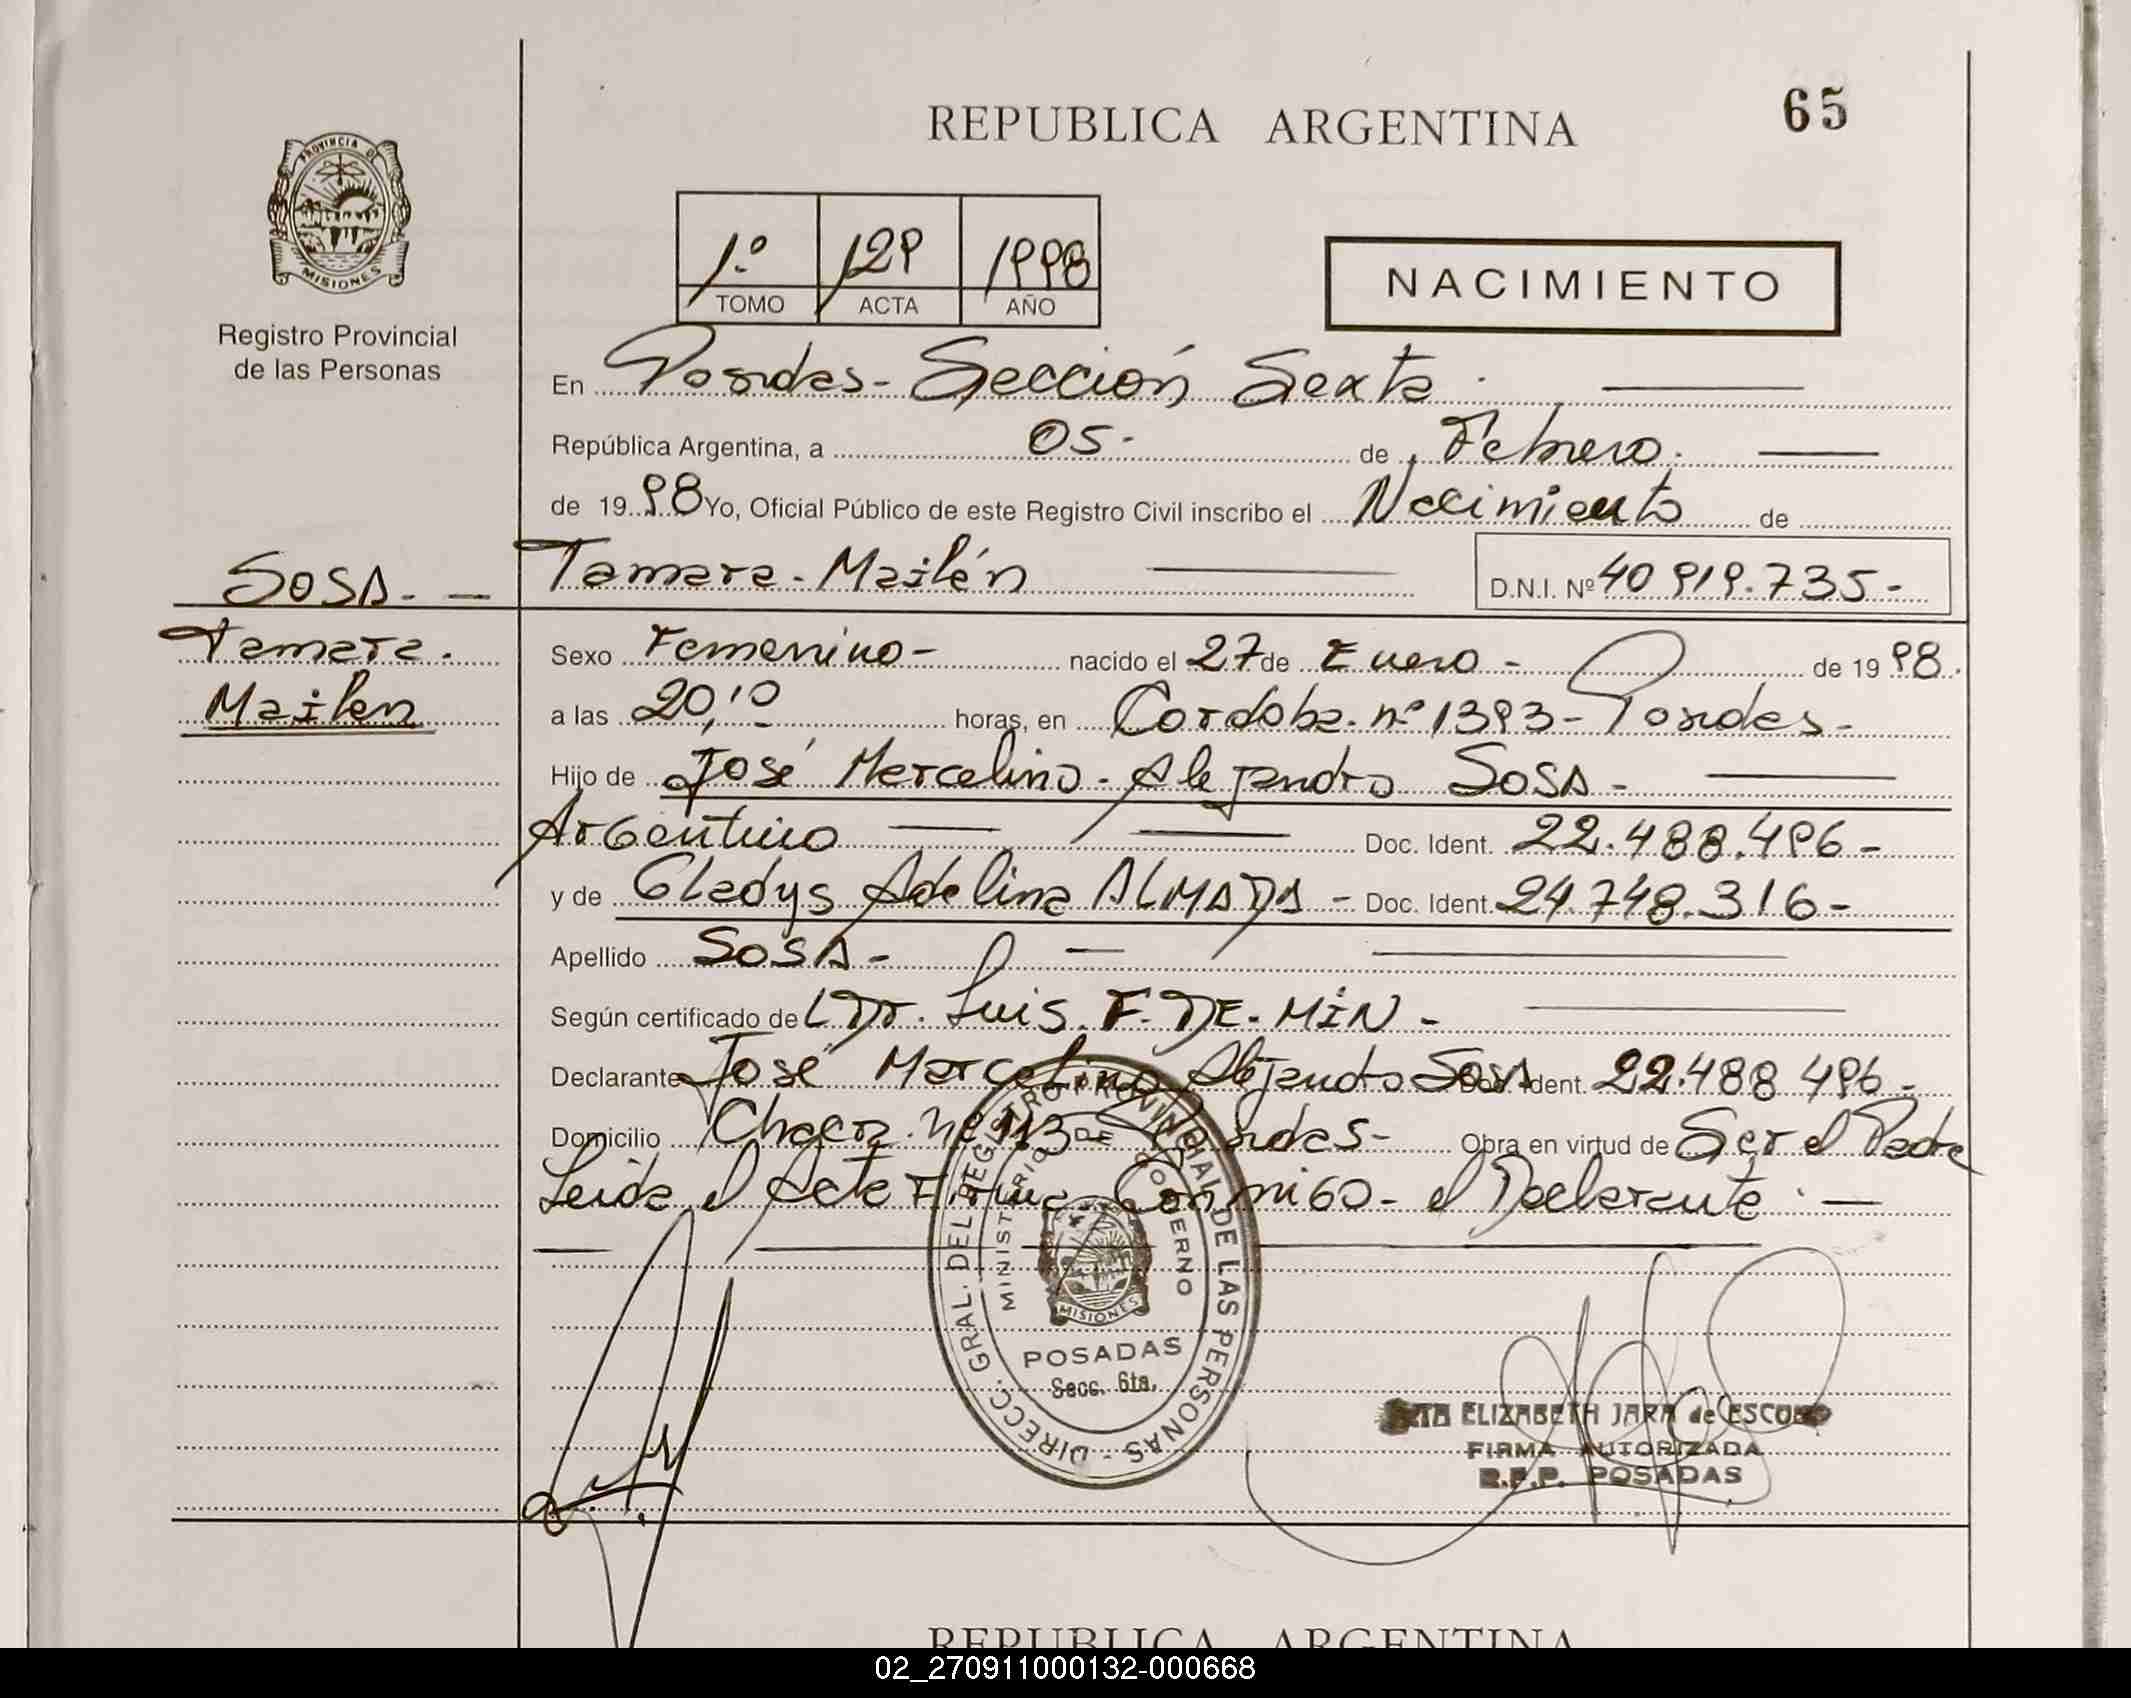 65
REPUBLICA ARGENTINA
PROVINCIA DE
MISIONES
Registro Provincial
de las Personas
1.º 129 1998
TOMO ACTA AÑO
NACIMIENTO
En Posadas - Sección Sexta.
República Argentina, a 05- de Febrero.
de 1998 Yo, Oficial Público de este Registro Civil inscribo el Nacimiento de
SOSA. - Tamara - Mailén D.N.I. Nº 40 919.735-
Tamara. Sexo Femenino - nacido el 27 de Enero - de 1998.
Mailen a las 20,10 horas, en Cordoba. nº 1393 - Posadas -
Hijo de José Marcelino - Alejandro SOSA -
Argentino Doc. Ident. 22.488.496 -
y de Gladys Adelina ALMADA - Doc. Ident. 24.748.316 -
Apellido SOSA -
Según certificado de L Dr. Luis. F. DE. MIN -
Declarante José Marcelino Alejandro Sosa Doc. Ident. 22.488 496 -
Domicilio Posadas - Obra en virtud de Ser el Padre
Leida el Acta Firma Conmigo - el Declarante. -
DIRECC. GRAL. DEL REGISTRO PROVINCIAL DE LAS PERSONAS -
MINISTERIO DE GOBIERNO
MISIONES
POSADAS
Secc. 6ta.
ELIZABETH JARA de
FIRMA AUTORIZADA
R.P.P. POSADAS
REPUBLICA ARGENTINA
02_270911000132-000668